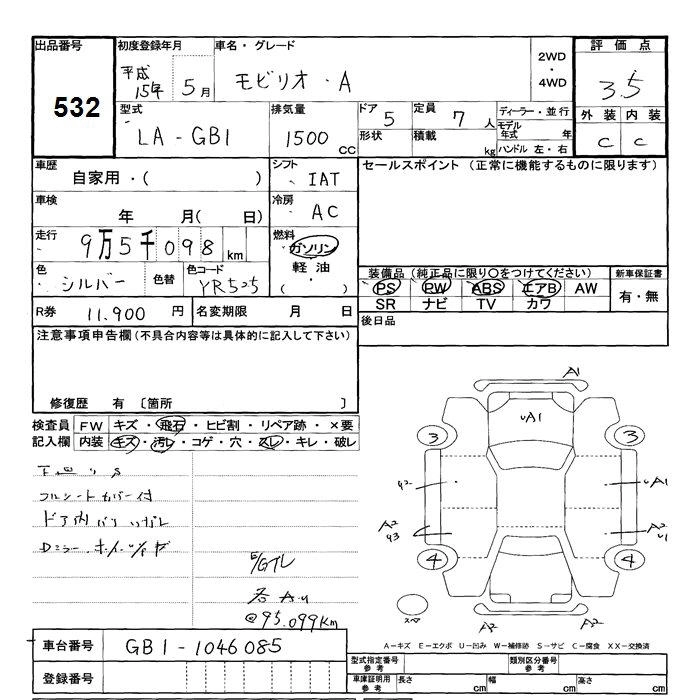 出品番号 初度登録年月 車名・グレード 2WD・4WD 評価点
532 平成15年 5月 モビリオ・A 3.5
型式 排気量 ドア 5 定員 7人 ディーラー・並行 外装 内装
LA-GB1 1500 CC 形状 積載 kg モデル年式 年 C C
ハンドル 左・右
車歴 シフト セールスポイント (正常に機能するものに限ります)
自家用・( ) IAT
車検 冷房
年 月( 日) AC
走行 燃料
9万5千098 km ガソリン
軽油
・( )
色 色替 色コード 装備品(純正品に限り○をつけてください) 新車保証書
シルバー YR525 PS PW ABS エアB AW 有・無
SR ナビ TV カワ
R券 11.900 円 名変期限 月 日 後日品
注意事項申告欄(不具合内容等は具体的に記入して下さい)
修復歴 有 〔箇所 〕
検査員 FW キズ・飛石・ヒビ割・リペア跡・×要
記入欄 内装 キズ・汚レ・コゲ・穴・スレ・キレ・破レ
フルシートカバー付
@95.099Km
A1
uA1
3 3
uA1
A2 A2
4 4
A2 A2
A-キズ E-エクボ U-凹み W-補修跡 S-サビ C-腐食 XX-交換済
車台番号 GB1-1046085
登録番号
型式指定番号 参考 類別区分番号 参考
車庫証明用 参考 長さ cm 幅 cm 高さ cm